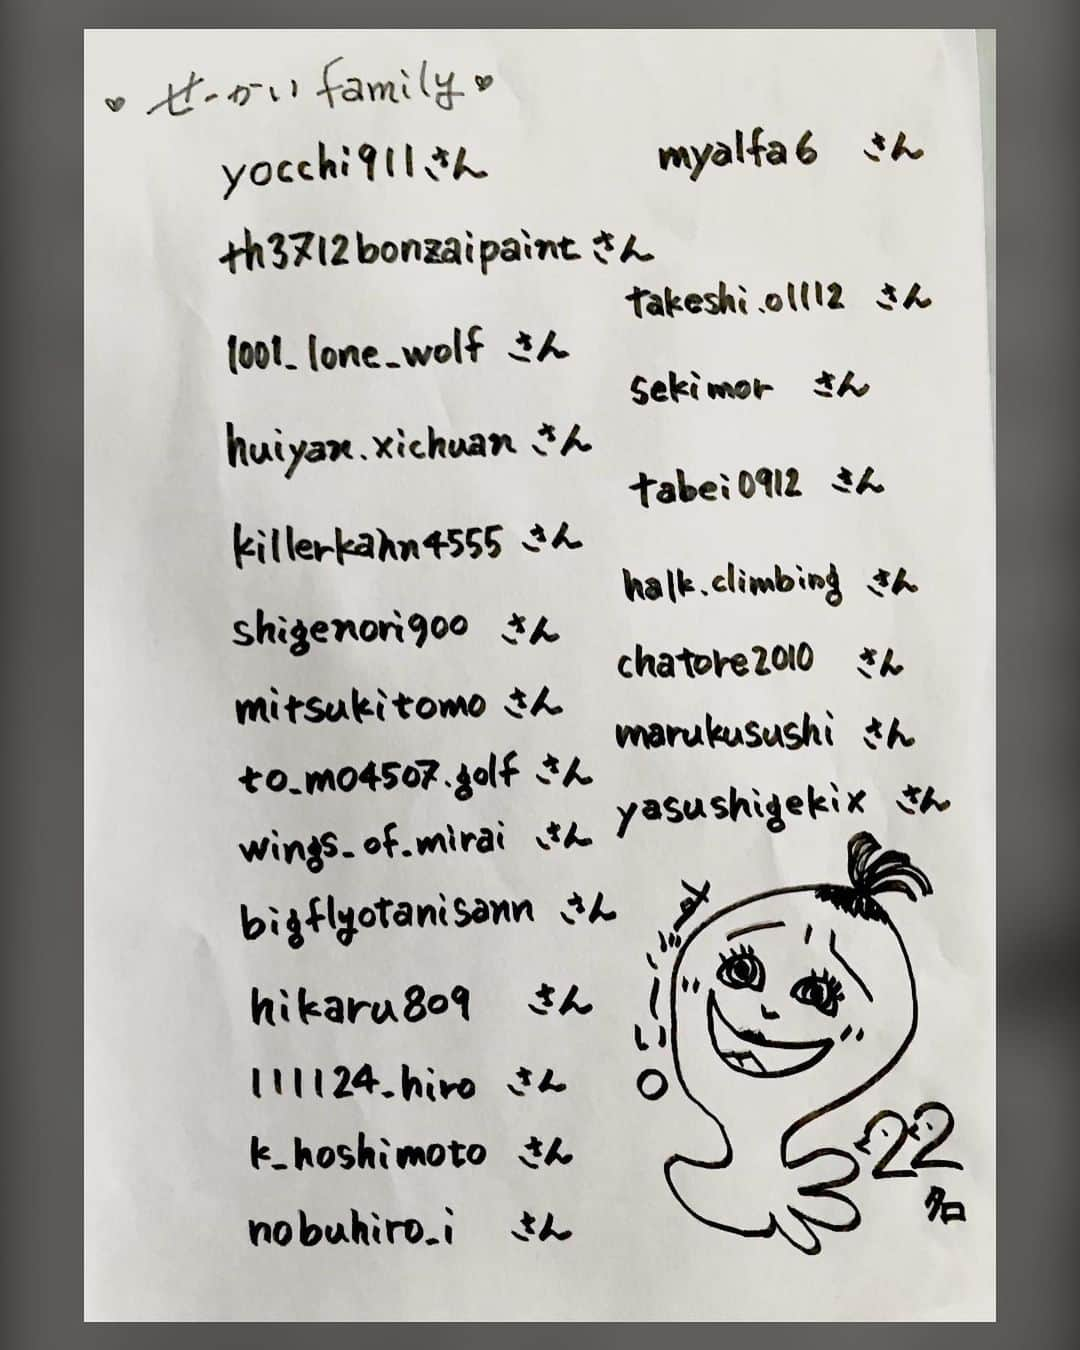 ♥ せーかい family ♥
yocchi911さん
th3712bonzaipaint さん
1001_lone_wolf さん
huiyan.xichuan さん
killerkahn4555 さん
shigenori900 さん
mitsukitomo さん
to_mo4507.golf さん
wings_of_mirai さん
bigflyotanisann さん
hikaru809 さん
111124_hiro さん
k_hoshimoto さん
nobuhiro_i さん
myalfa6 さん
takeshi.01112 さん
sekimor さん
tabei0912 さん
halk.climbing さん
chatore2010 さん
marukusushi さん
yasushigekix さん
22
名